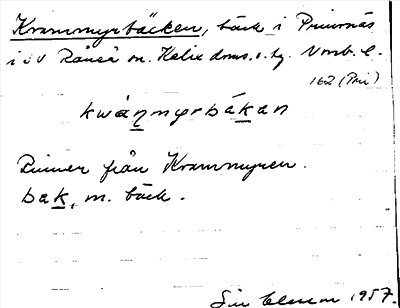 Krammyrbäcken, bäck i Prinsnäs
i SV Råneå sn. Kalix doms. o. tg. Norrb. l.
162 (Pri)
kwáŋmyrbákan
Rinner från Krammyren.
bak, m. bäck.
Siv Olsson 1957.